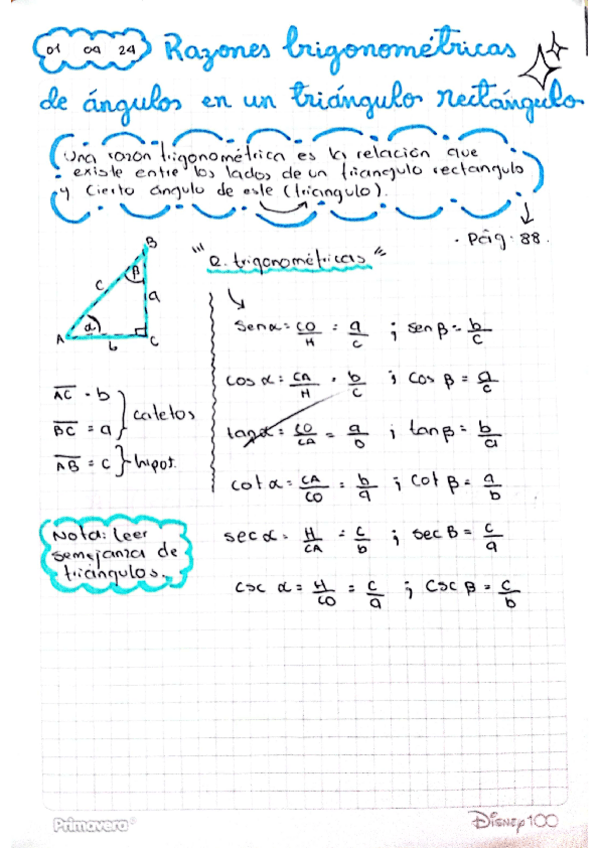 01 09 24 Razones trigonométricas
de ángulos en un triángulo rectángulo
Una razon trigonométrica es la relación que
existe entre los lados de un triangulo rectangulo
y cierto angulo de este (triangulo).
· Pág. 88.
R. trigonométricas
B
β
c
a
α
A
b
C
Sen α = CO/H = a/c ; sen β = b/c
cos α = CA/H = b/c ; cos β = a/c
tan α = CO/CA = a/b ; tan β = b/a
cot α = CA/CO = b/a ; cot β = a/b
sec α = H/CA = c/b ; sec β = c/a
csc α = H/CO = c/a ; csc β = c/b
AC = b
BC = a
} catetos
AB = c } hipot.
Nota: Leer
semejanza de
triángulos.
Primavera
Disney100